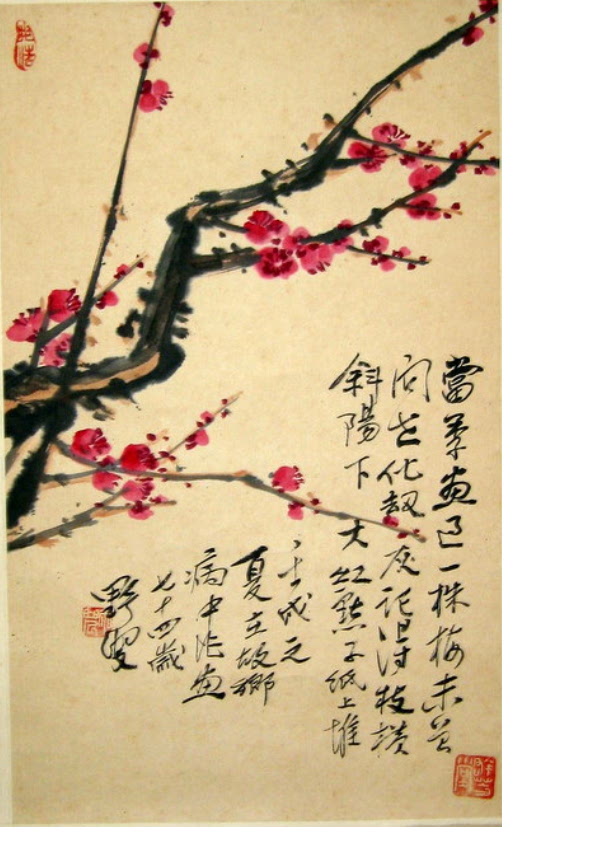 當年畫過一株梅未曾
问世化劫灰記得枝横
斜陽下大红點子纸上堆
壬戌之
夏在故鄉
病中作畫
七十四歲
野叟